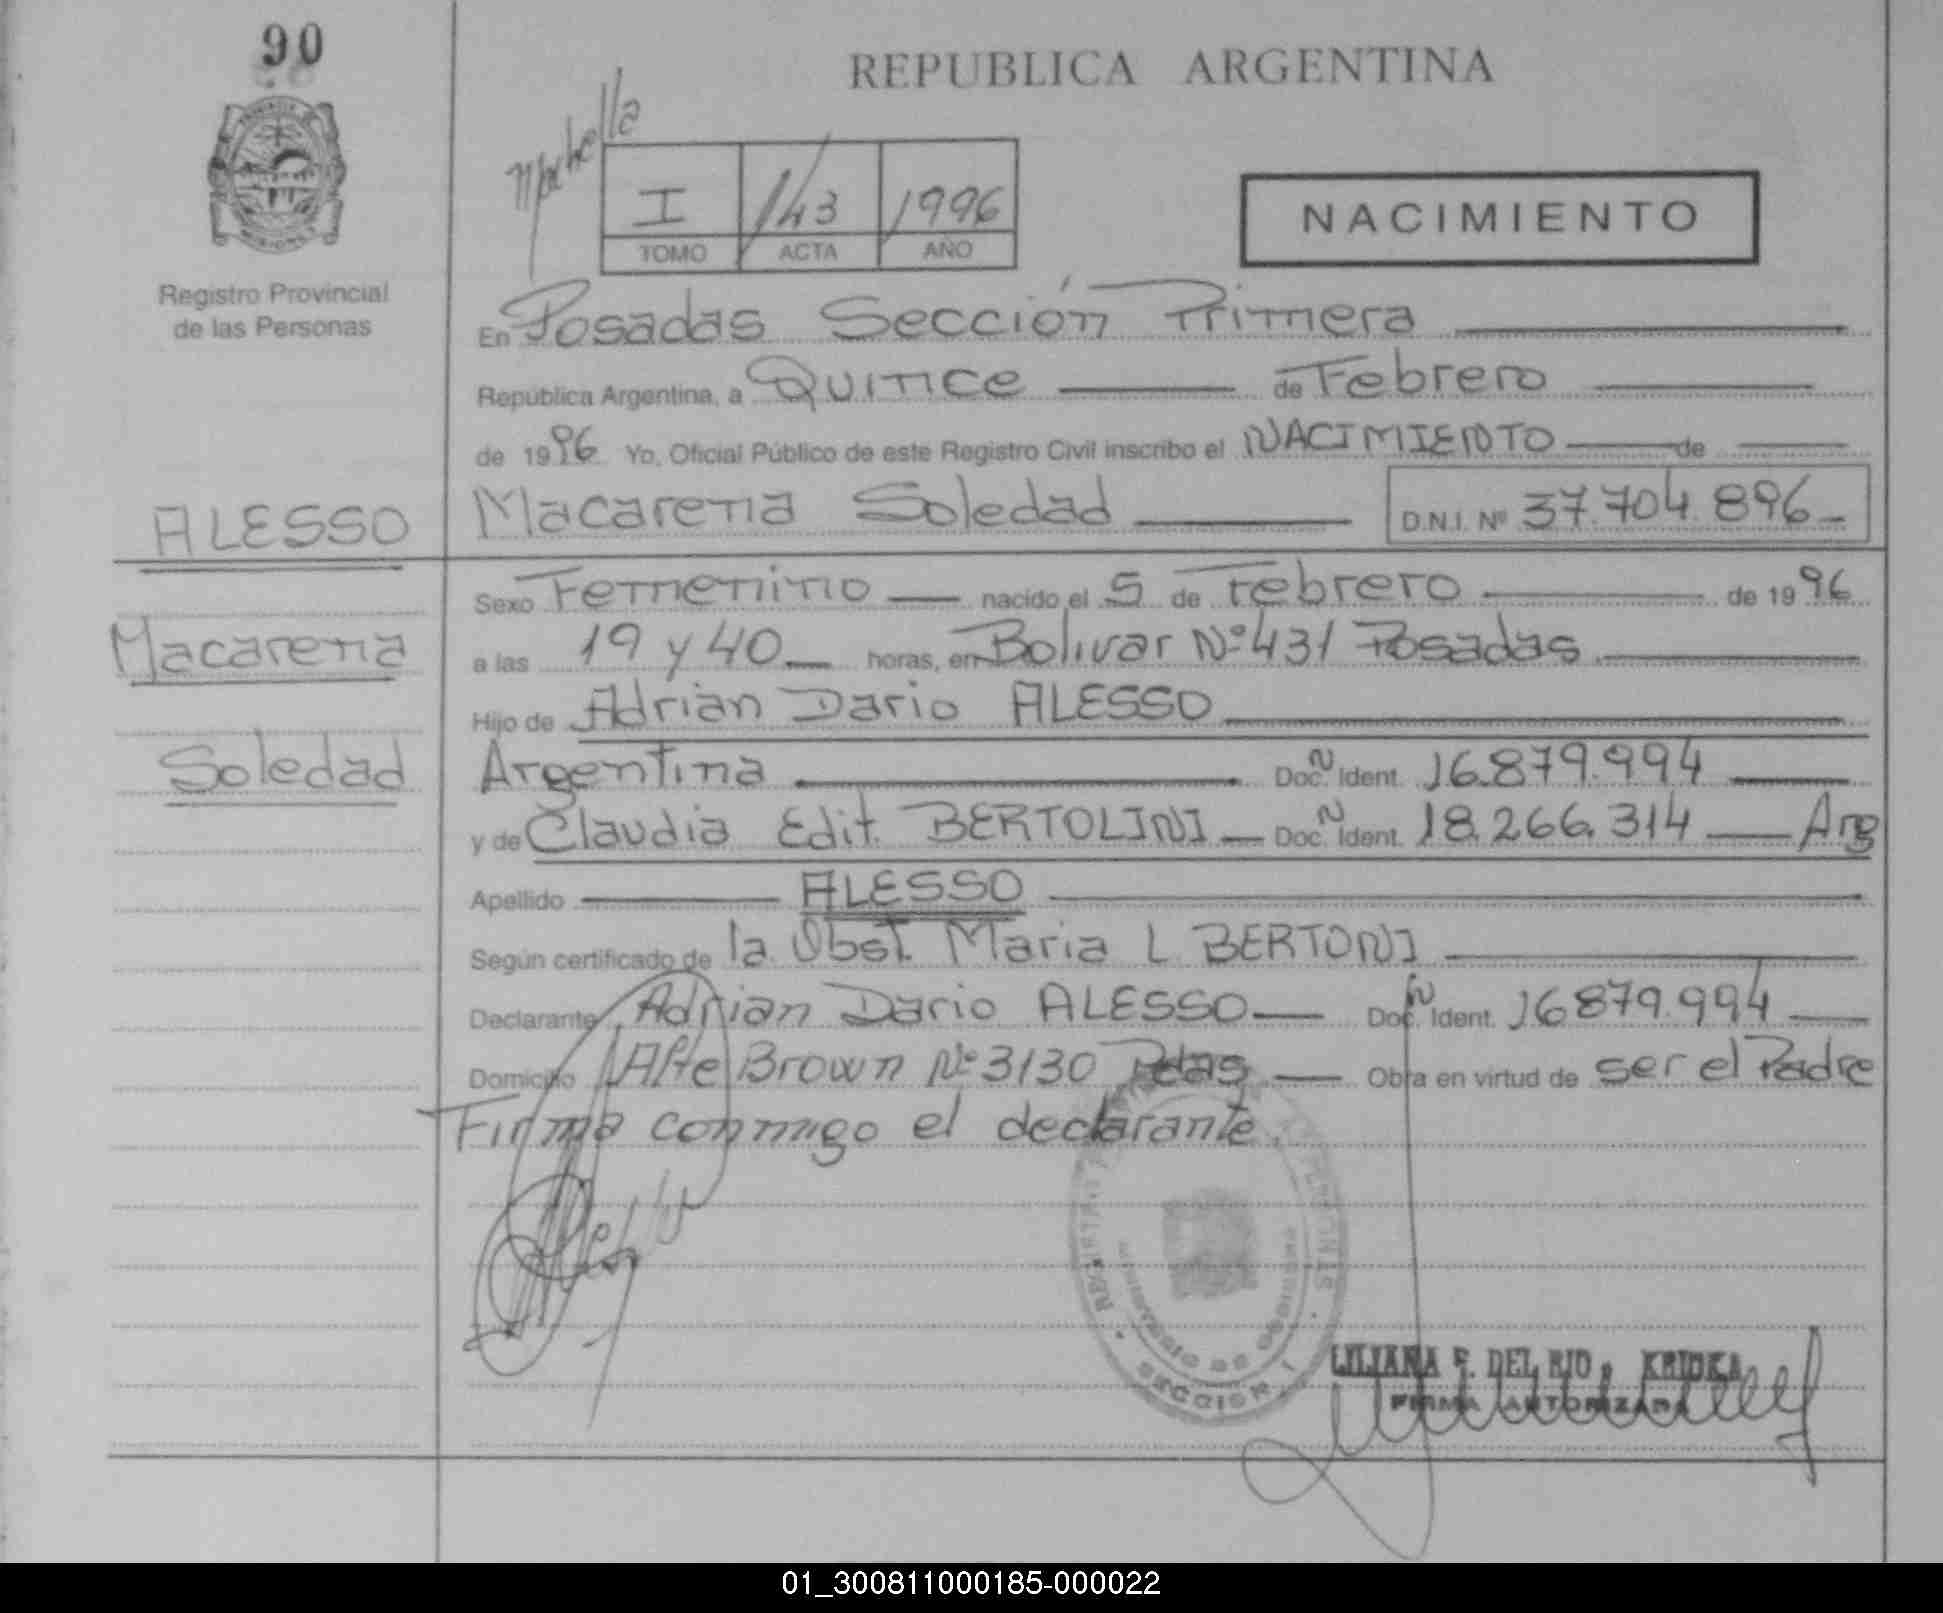 90
REPUBLICA ARGENTINA
Registro Provincial
de las Personas
I 143 1996
TOMO ACTA AÑO
NACIMIENTO
En Posadas Sección Primera
República Argentina, a Quince de Febrero
de 1996 Yo, Oficial Público de este Registro Civil inscribo el NACIMIENTO de
ALESSO
Macarena Soledad D.N.I. Nº 37.704.896
Sexo Femenino nacido el 5 de Febrero de 1996
Macarena
a las 19 y 40 horas, en Bolivar Nº 431 Posadas
Hijo de Adrian Dario ALESSO
Soledad
Argentina Doc. N Ident. 16.879.994
y de Claudia Edit. BERTOLINI Doc. N Ident. 18.266.314 Arg
Apellido ALESSO
Según certificado de la Obst. Maria L. BERTONI
Declarante Adrian Dario ALESSO Doc. N Ident. 16879.994
Domicilio Alte Brown Nº 3130 Pdas Obra en virtud de ser el Padre
Firma conmigo el declarante.
SECCION I
LILIANA F. DEL RIO KRIDKA
FIRMA AUTORIZADA
01_300811000185-000022